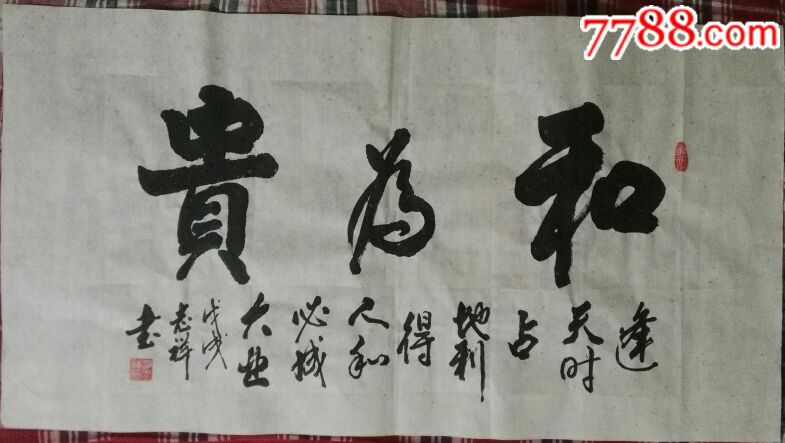 7788.com
和為貴
逢
天时
占
地利
得
人和
必成
大业
戊戌
志祥
书